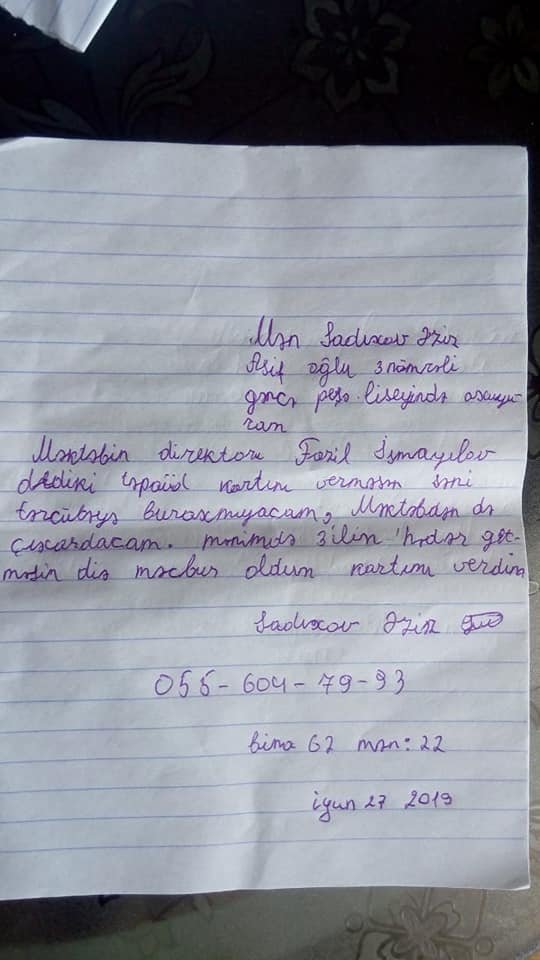 Mən Sadıxov Əziz
Asif oğlu 3 nömrəli
gəncə peşə liseyində oxuyu-
ram
Məktəbin direktoru Fazil İsmayılov
dediki kartını verməsən səni
təcrübəyə buraxmıyacam, Məktəbdən də
çıxardacam. mənimdə 3 ilin hədər get-
məsin diə məcbur oldum kartımı verdim
Sadıxov Əziz
055-604-79-93
bina 62 mən: 22
iyun 27 2019